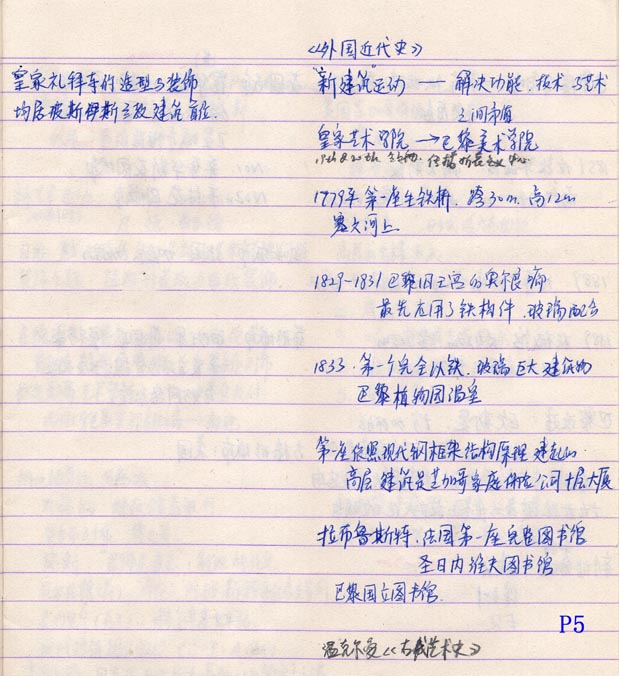 皇家礼拜车的造型与装饰
均居波斯伊斯兰教建筑首位.
《外国近代史》
"新建筑运动 —— 解决功能、技术与艺术
之间矛盾
皇家艺术学院 → 巴黎美术学院
19th & 20th 传播折衷主义中心
1779年第一座生铁桥. 跨30m. 高12m
塞文河上
1829-1831 巴黎旧王宫的奥尔良廊
最先应用了铁构件. 玻璃配合
1833. 第一个完全以铁. 玻璃巨大建筑物
巴黎植物园温室
第一座依照现代钢框架结构原理建起的
高层建筑是芝加哥家庭保险公司十层大厦
拉布鲁斯特. 法国第一座完整图书馆
圣日内维夫图书馆
巴黎国立图书馆.
P5
温克尔曼《古代艺术史》